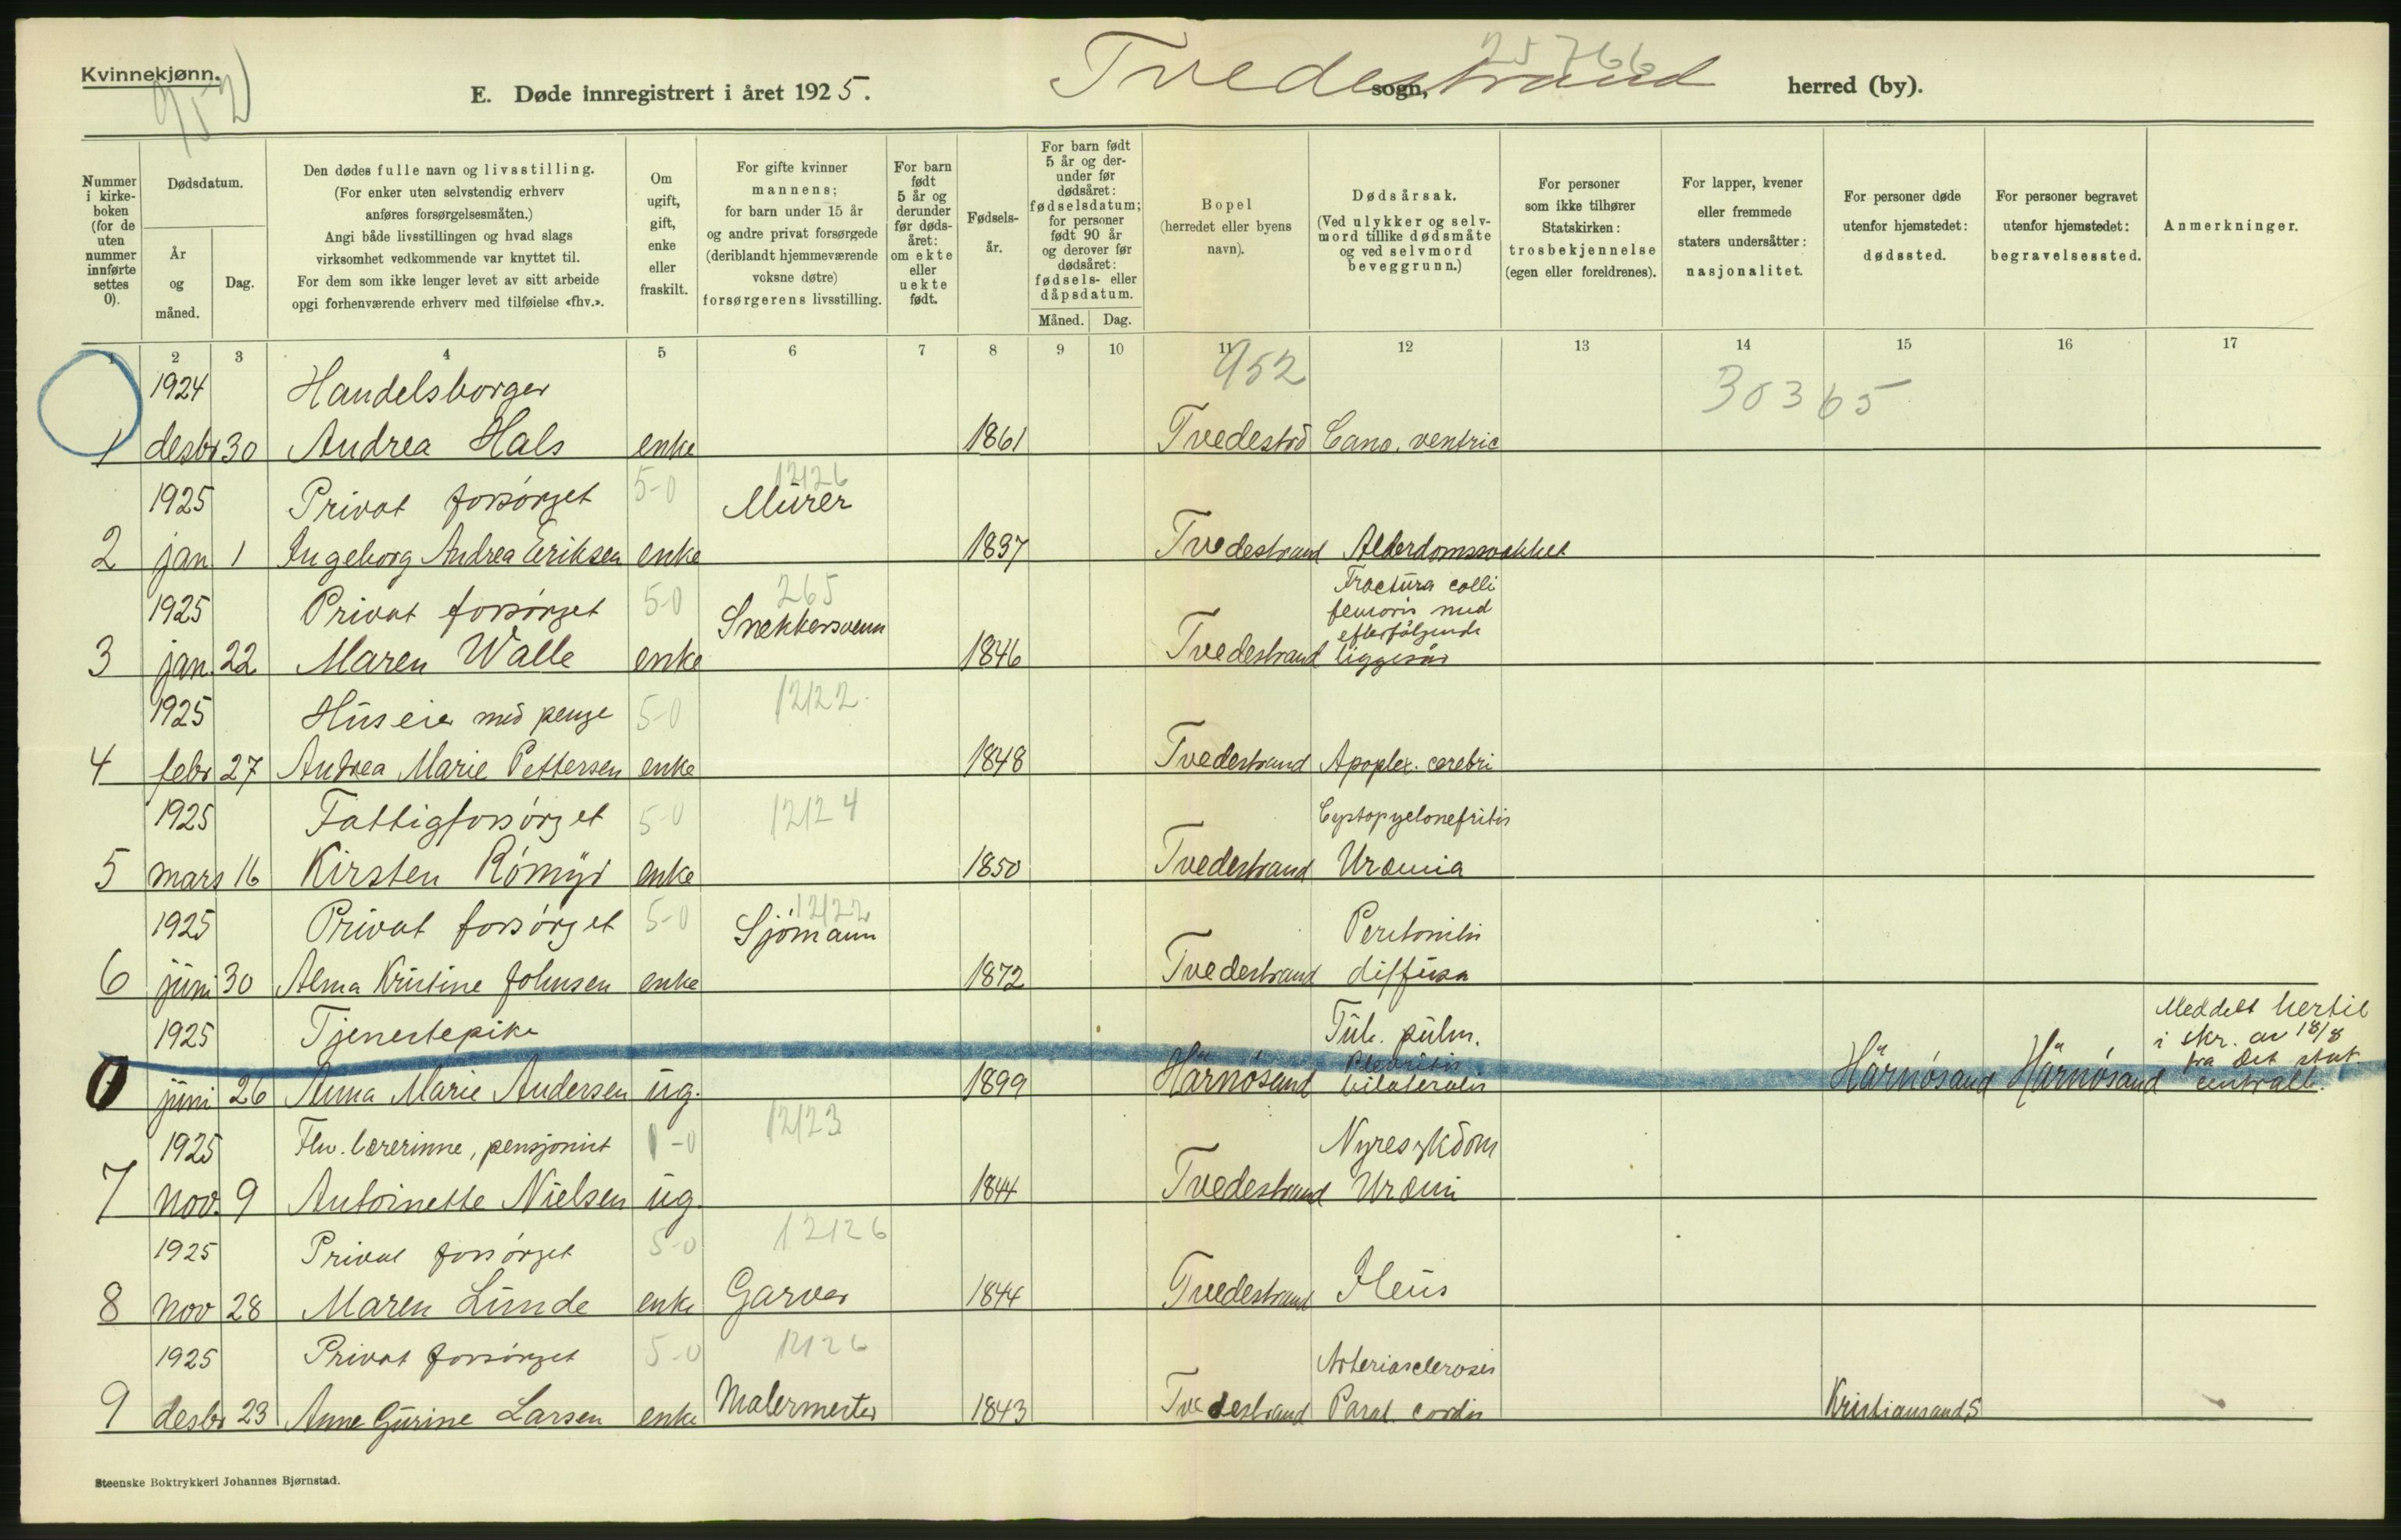 Kvinnekjønn.
952)
E. Døde innregistrert i året 1925.
Tvedestrand
25766
sogn,
herred (by).
Nummer i kirke-boken (for de uten nummer innførte settes 0).
Dødsdatum.
År og måned.
Dag.
Den dødes fulle navn og livsstilling.
(For enker uten selvstendig erhverv
anføres forsørgelsesmåten.)
Angi både livsstillingen og hvad slags
virksomhet vedkommende var knyttet til.
For dem som ikke lenger levet av sitt arbeide
opgi forhenværende erhverv med tilføielse «fhv.».
Om ugift, gift, enke eller fraskilt.
For gifte kvinner
mannens;
for barn under 15 år
og andre privat forsørgede
(deriblandt hjemmeværende
voksne døtre)
forsørgerens livsstilling.
For barn født 5 år og derunder før døds-året: om ekte eller uekte født.
Fødsels-år.
For barn født 5 år og der-under før dødsåret: fødselsdatum; for personer født 90 år og derover før dødsåret: fødsels- eller dåpsdatum.
Måned.
Dag.
Bopel
(herredet eller byens
navn).
Dødsårsak.
(Ved ulykker og selv-
mord tillike dødsmåte
og ved selvmord
beveggrunn.)
For personer
som ikke tilhører
Statskirken:
trosbekjennelse
(egen eller foreldrenes).
For lapper, kvener
eller fremmede
staters undersåtter:
nasjonalitet.
For personer døde
utenfor hjemstedet:
dødssted.
For personer begravet
utenfor hjemstedet:
begravelsessted.
Anmerkninger.
1 2 3 4 5 6 7 8 9 10 11 12 13 14 15 16 17
952
30365
1924 Handelsborger
1 desbr 30 Andrea Hals enke 1861 Tvedestrd Canc. ventric
5-0 12126
1925 Privat forsørget Murer
2 jan 1 Ingeborg Andrea Eriksen enke 1837 Tvedestrand Alderdomssvakhet
5-0 265
1925 Privat forsørget Snekkersvenn Fractura colli
femoris med
efterfølgende
3 jan. 22 Maren Walle enke 1846 Tvedestrand liggesår
5-0 12122
1925 Huseier med penge
4 febr 27 Andrea Marie Pettersen enke 1848 Tvedestrand Apoplex. cerebri
5-0 12124
1925 Fattigforsørget Cystopyelonefritis
5 mars 16 Kirsten Rømyr enke 1850 Tvedestrand Uræmia
5-0 12122
1925 Privat forsørget Sjømann Peritonitis
6 juni 30 Alma Kristine Johnsen enke 1872 Tvedestrand diffusa
1925 Tjenestepike Tub. pulm.
Pleuritis
Meddelt hertil
i skr. av 18/8
fra Det stat.
0 juni 26 Anna Marie Andersen ug. 1899 Härnösand bilateralis Härnösand Härnösand centralb.
12123
1925 Fhv. lærerinne, pensjonist 1-0 Nyresykdom
7 nov. 9 Antoinette Nielsen ug. 1844 Tvedestrand Uræmi
5-0 12126
1925 Privat forsørget
8 nov 28 Maren Lunde enke Garver 1844 Tvedestrand Ileus
5-0 12126
1925 Privat forsørget Arteriosclerosis
9 desbr 23 Anne Gurine Larsen enke Malermester 1843 Tvedestrand Paral. cordis Kristiansand S
Steenske Boktrykkeri Johannes Bjørnstad.